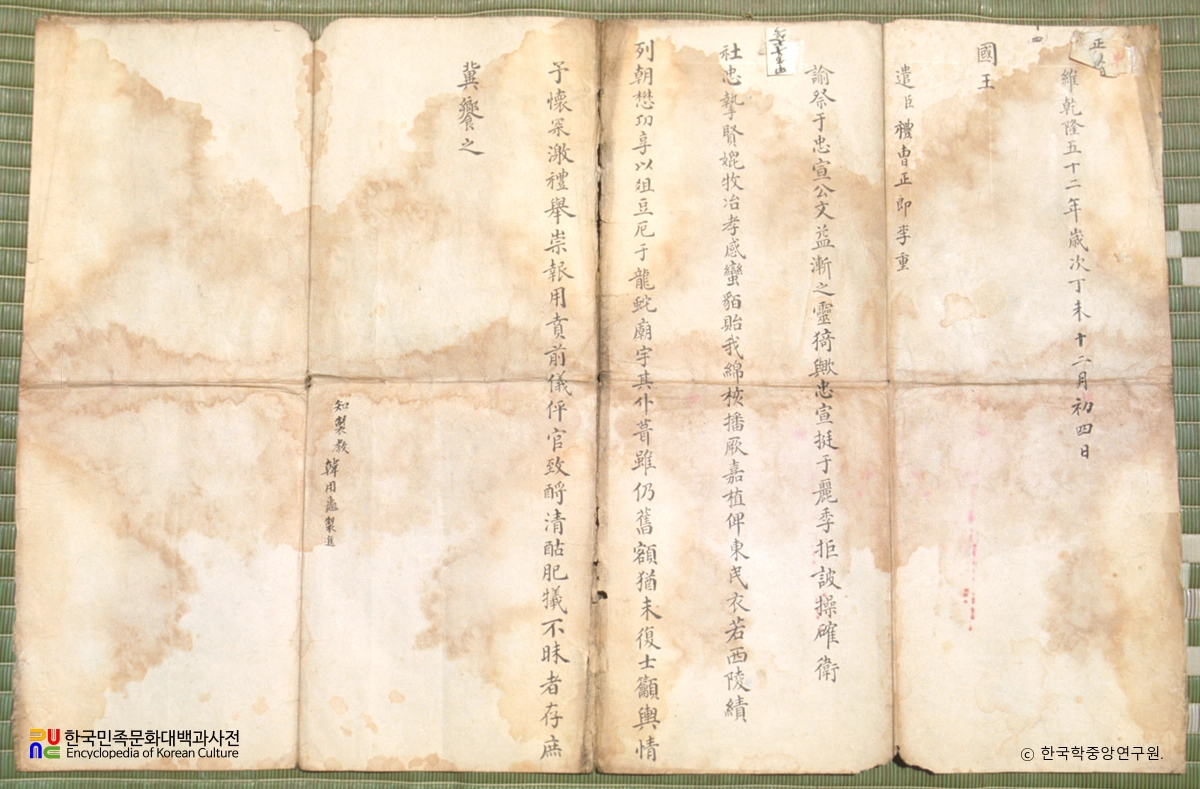 維乾隆五十二年歲次丁未十二月初四日
國王
遣臣禮曹正郎李重
諭祭于忠宣公文益漸之靈猗歟忠宣挺于麗季拒詖操確衛
社忠摯賢媲牧冶孝感蠻貊貽我綿核播厥嘉植俾東民衣若西陵績
列朝懋功享以俎豆厄于龍蛇廟宇其仆葺雖仍舊額猶未復士籲輿情
予懷冞激禮舉崇報用賁前儀伻官致酹清酤肥犧不昧者存庶
冀饗之
知製敎韓用龜製進
한국민족문화대백과사전
Encyclopedia of Korean Culture
ⓒ 한국학중앙연구원.